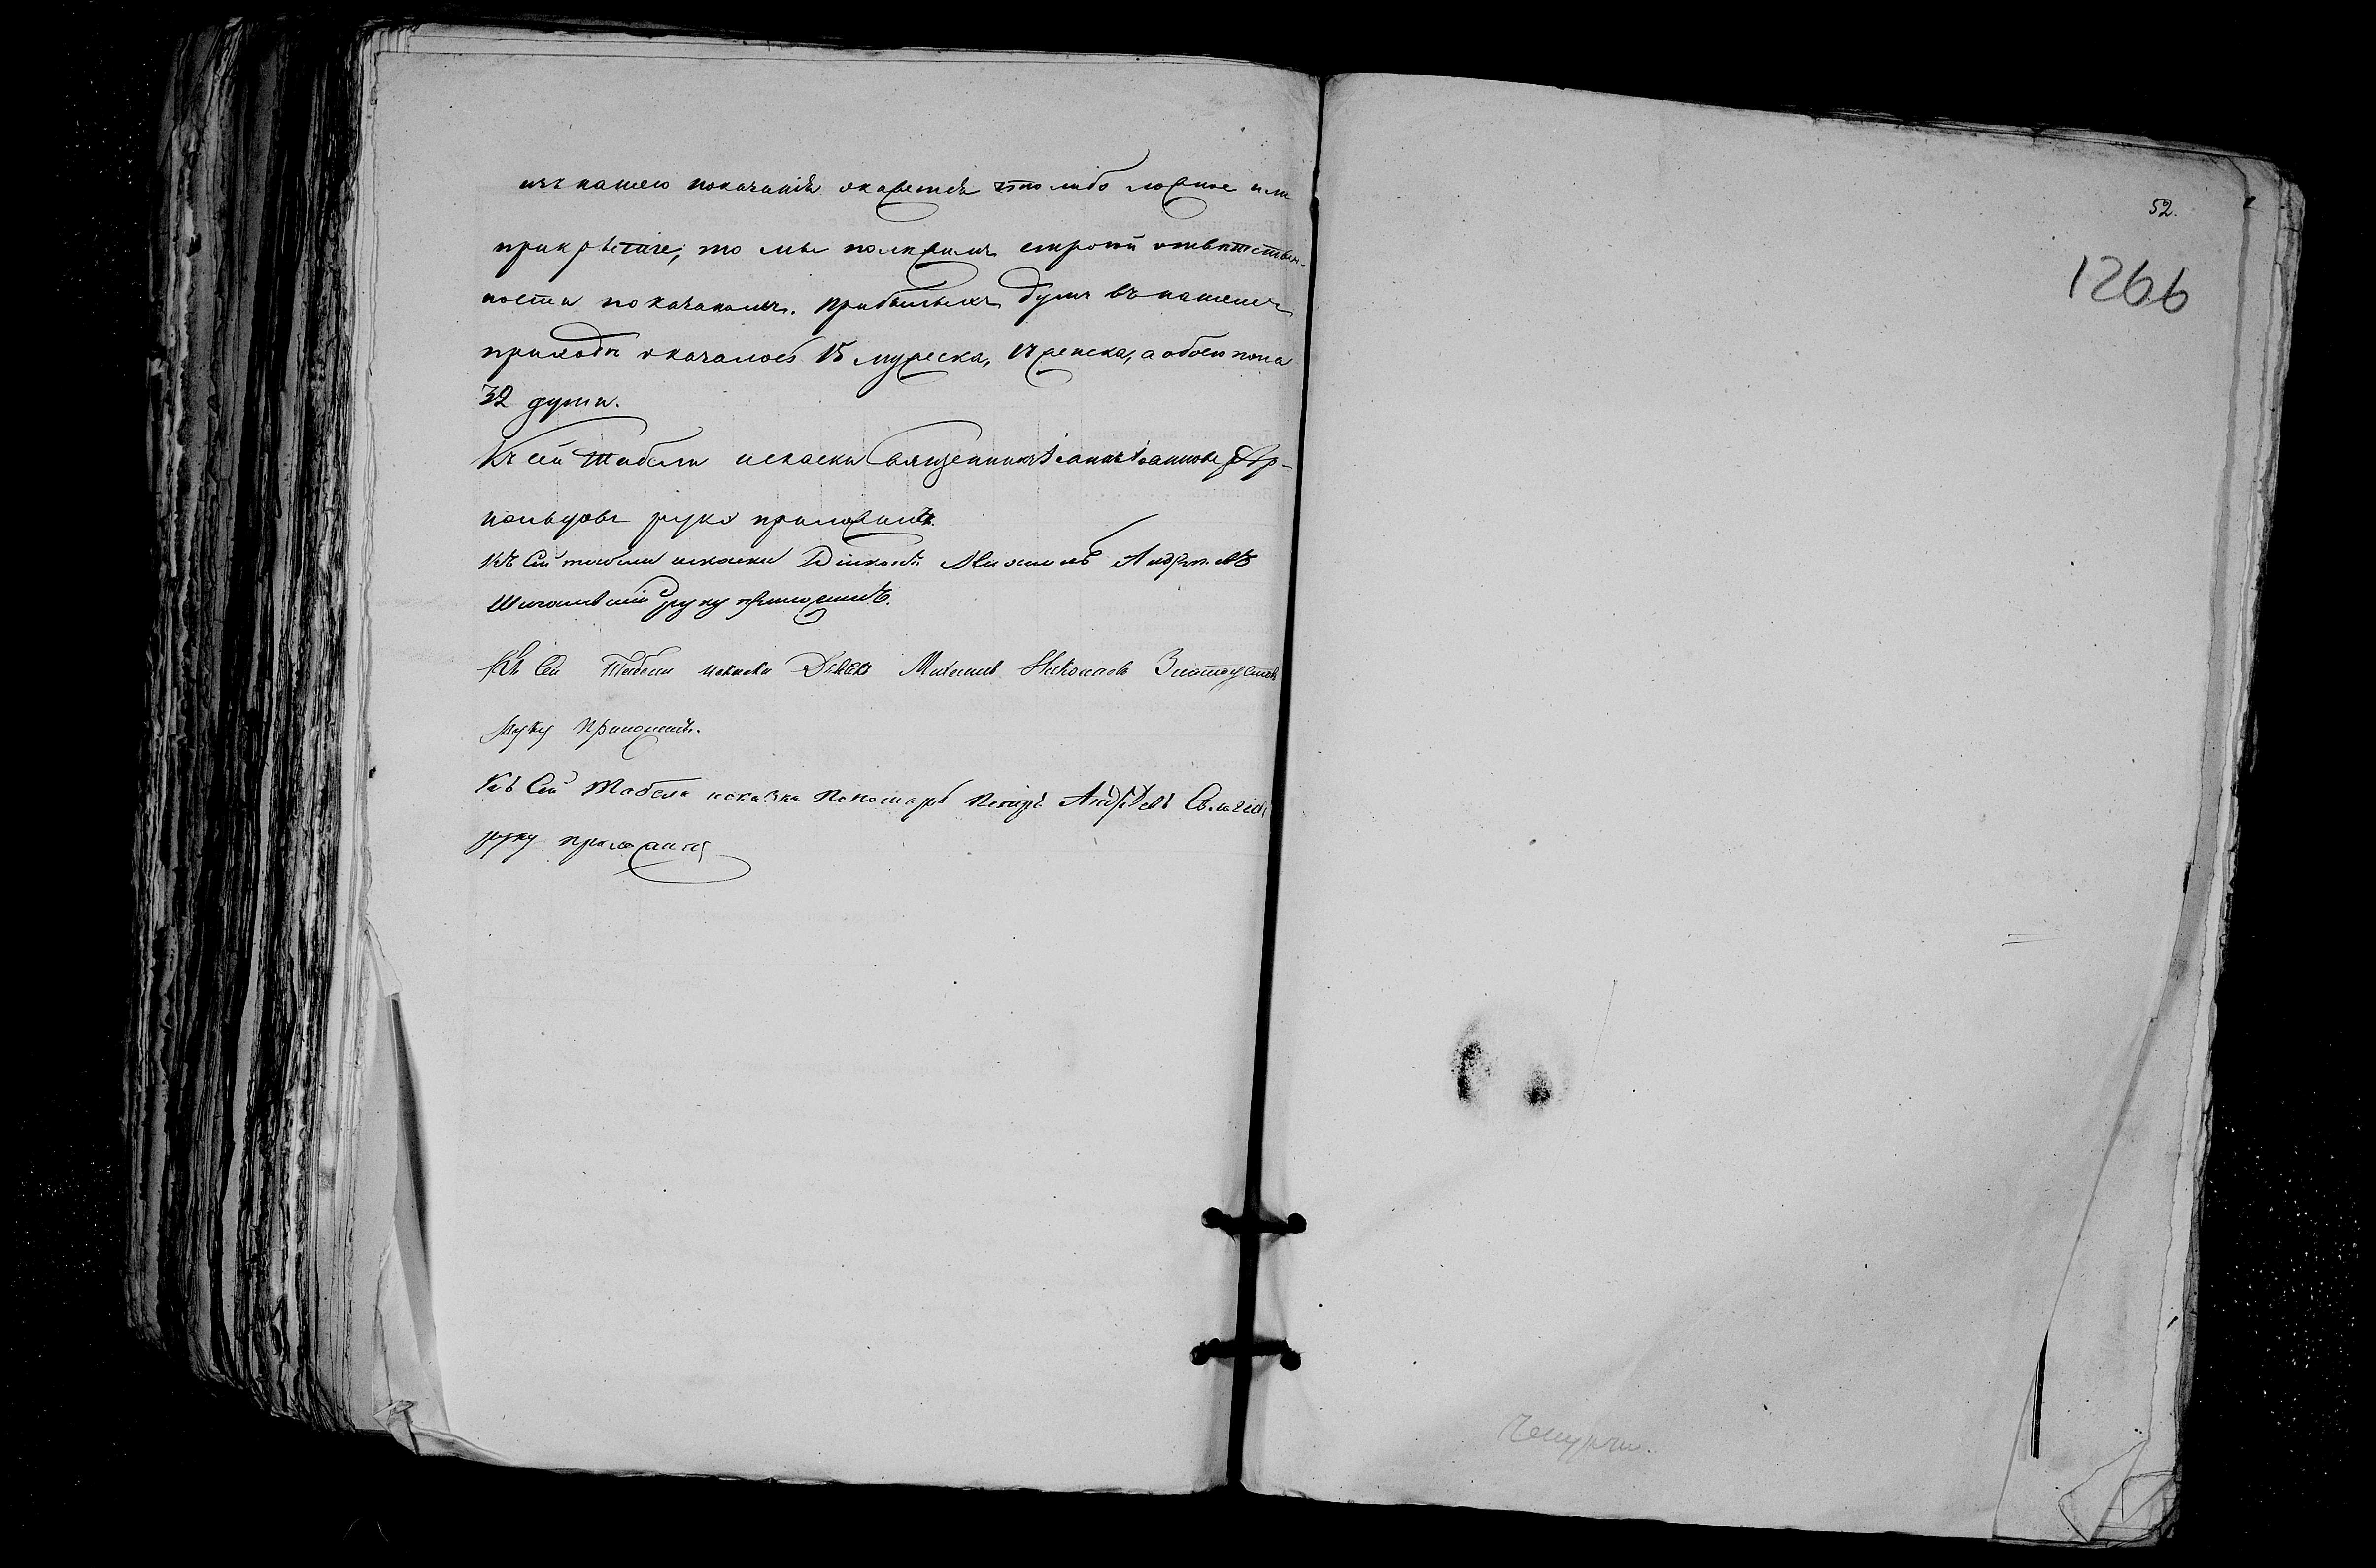 изъ нашего показанія окажется что либо ложное или
прикрытое, то мы подлежимъ строгой отвѣтствен-
ности по законамъ. Прибылыхъ душъ въ нашемъ
приходѣ оказалось 15 мужеска, 17 женска, а обоего пола
32 души.
Къ сей табели и скаски Священникъ Іоаннъ Іоанновъ
руку приложилъ.
Къ сей табели искаски Діаконъ Андреевъ
руку приложилъ.
Къ Сей Табели искаски Дьякъ Михаилъ Николаевъ Златоустовъ
руку Приложилъ.
Къ Сей Табели исказка Пономарь Петръ Андреевъ
руку приложилъ
52.
1266